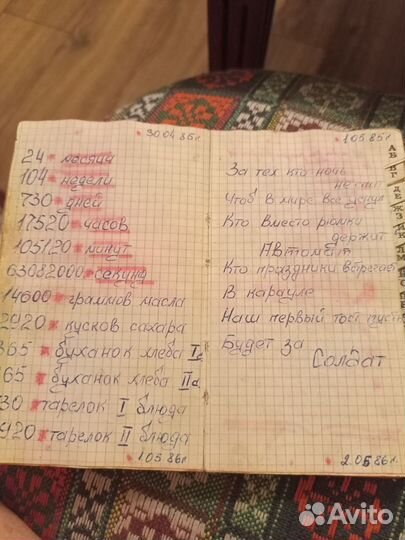 30.04.85г.
24 - месяца
104 - недели
730 - дней
17520 - часов
105120 - минут
63082000 - секунд
14600 - граммов масла
2920 - кусков сахара
365 - буханок хлеба I
365 - буханок хлеба II
730 - тарелок I блюда
920 - тарелок II блюда
1.05.86г.
1.05.85г.
За тех кто ночь
не спит
Чтоб в мире все
Кто вместо рюмки
держит
Автомат
Кто праздники встречает
В карауле
Наш первый тост пусть
Будет за
Солдат
2.05.86г.
АБ
ВГ
ДЕ
ЖЗ
Avito